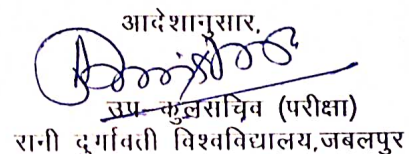 आदेशानुसार,
उप-कुलसचिव (परीक्षा)
रानी दुर्गावती विश्वविद्यालय,जबलपुर